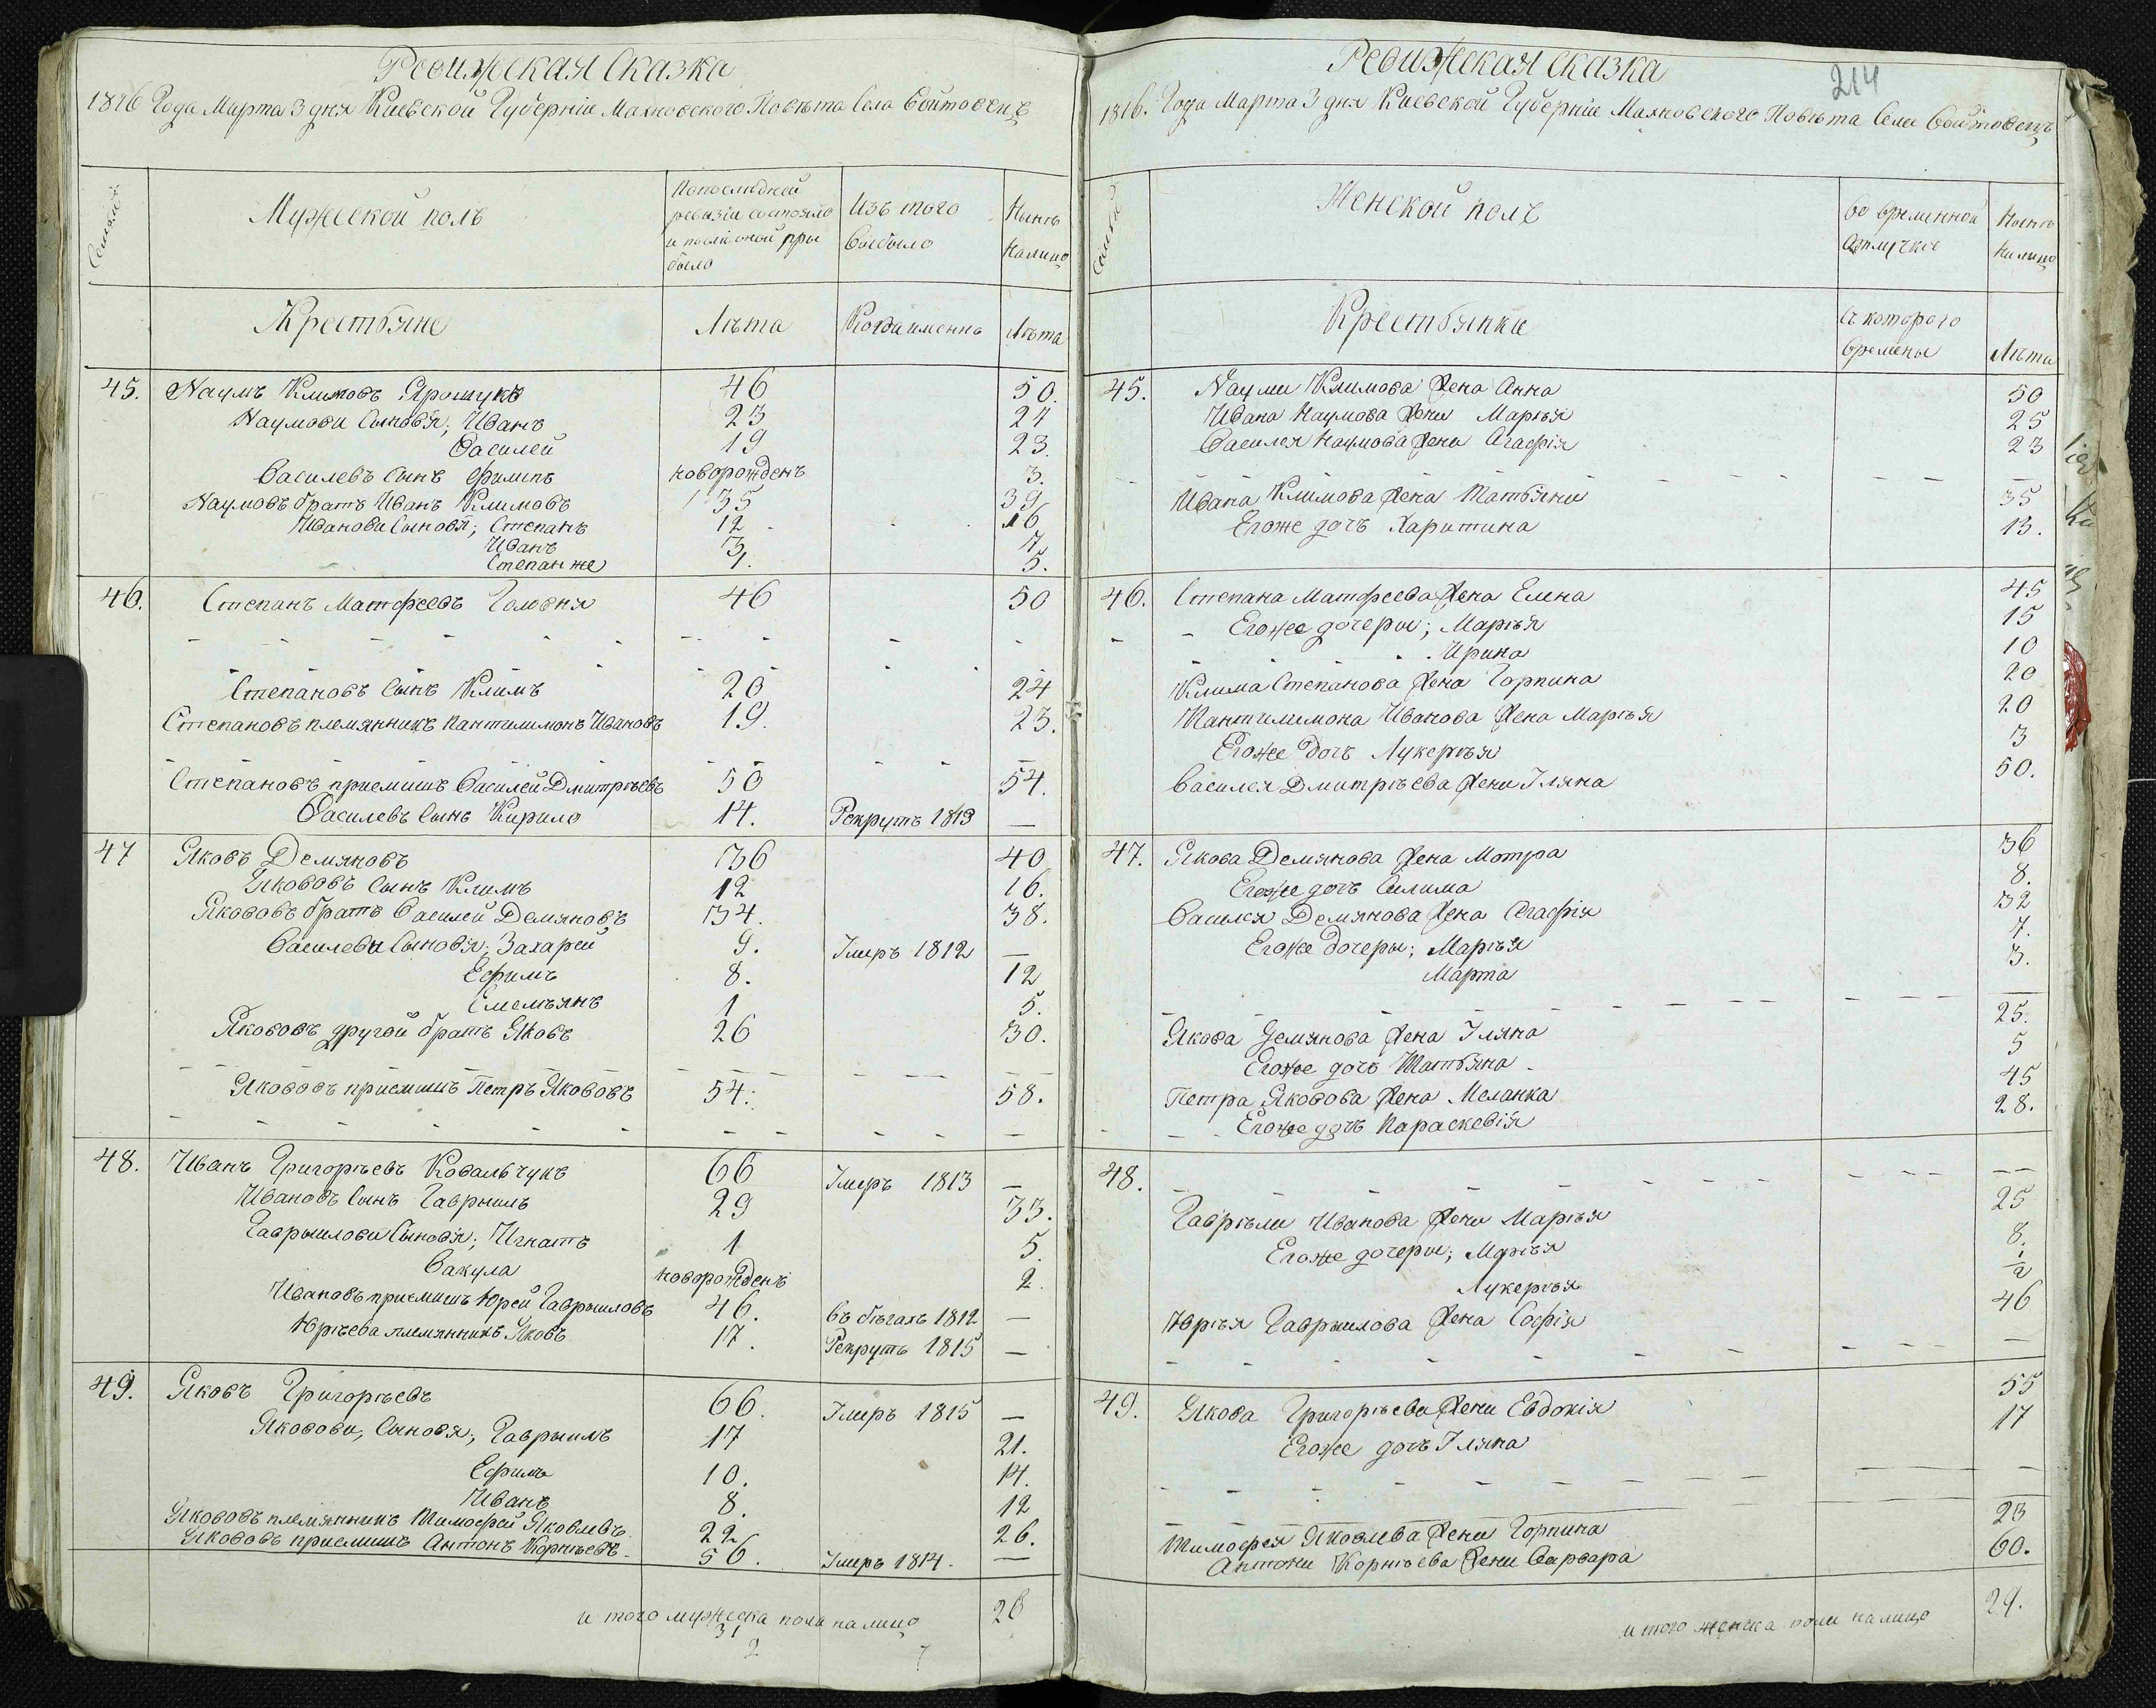 Ревижская Сказка
1816 Года Марта 3 дня Киевской Губерніи Махновского Повѣта Села Войтовецъ
Семья
Мужеской полъ
Попоследней ревизіи состояло и после оной прыбыло
Изъ того выбыло
Нынѣ налицо
Крестьяне
Лѣта
Когда именно
Лѣта
45. Наумъ Климовъ Ярошукъ 46 50.
Наумови Сыновья; Иванъ 23 27
Василей 19 23.
Василевъ Сынъ Филипъ новорожденъ 3.
Наумовъ братъ Иванъ Климовъ 35 39
Иванови Сыновья; Степанъ 12 16
Иванъ 3 7
Степан же 1. 5.
46. Степанъ Матфеевъ Головня 46 50
Степановъ Сынъ Климъ 20 24
Степановъ племянникъ Пантилимонъ Ивановъ 19. 23.
Степановъ приемишъ Василей Дмитріевъ 50 54.
Василевъ Сынъ Кирило 14. Рекрутъ 1813 —
47 Яковъ Демяновъ 36 40
Якововъ Сынъ Климъ 12 16.
Якововъ братъ Василей Демяновъ 34. 38.
Василеви Сыновья; Захарей 9. Умеръ 1812 —
Ефимъ 8. 12
Емельянъ 1 5.
Якововъ другой братъ Яковъ 26 30.
Якововъ приемишъ Петръ Якововъ 54. 58.
48. Иванъ Григорьевъ Ковальчукъ 66 Умеръ 1813 —
Ивановъ Сынъ Гаврыилъ 29 33.
Гаврыилови Сыновья; Игнатъ 1 5.
Вакула новорожденъ 2.
Ивановъ приемишъ Юрей Гаврыиловъ 46. въ бѣгахъ 1812 —
Юрьева племянникъ Яковъ 17. Рекрутъ 1815 —
49. Яковъ Григорьевъ 66. Умеръ 1815 —
Яковови, Сыновя; Гаврыилъ 17 21.
Ефимъ 10. 14.
Иванъ 8. 12
Якововъ племянникъ Тимофей Яковлевъ 22 26.
Якововъ приемишъ Антонъ Корнѣевъ 56. Умеръ 1814. —
и того мужеска пола налицо 28
31
2 7
Ревижская Сказка
214
1816. Года Марта 3 дня Киевской Губерніи Махновского Повѣта Села Войтовецъ
Семья
Женской полъ
Во временной отлучке
Нынѣ налицо
Крестьянки
Съ которого времены
Лѣта
45. Наума Климова Жена Анна 50
Ивана Наумова Жена Марья 25
Василея Наумова Жена Агафія 23
Ивана Климова Жена Татьяна 35
Егоже дочь Харитина 13.
46. Степана Матфеева Жена Елена 45
Егоже дочеры; Марья 15
Ирина 10
Клима Степанова Жена Горпина 20
Пантилимона Иванова Жена Марья 20
Егоже дочь Лукерья 3
Василея Дмитріева Жена Уляна 50.
47. Якова Демянова Жена Мотра 36
Егоже дочь Салима 8.
Василея Демянова Жена Агафія 32
Егоже дочеры; Марья 7.
Марта 3.
Якова Демянова Жена Уляна 25.
Егоже дочь Татьяна 5
Петра Яковова Жена Меланка 45
Егоже дочь Параскевія 28.
48.
Гавріила Иванова Жена Марья 25
Егоже дочеры; Марья 8.
Лукерья 1/2
Юрья Гаврыилова Жена Софія 46
49. Якова Григорьева Жена Евдокія 55
Егоже дочь Уляна 17
Тимофея Яковлева Жена Горпина 23
Антона Корнѣева Жена Варвара 60.
и того женска пола налицо 29.